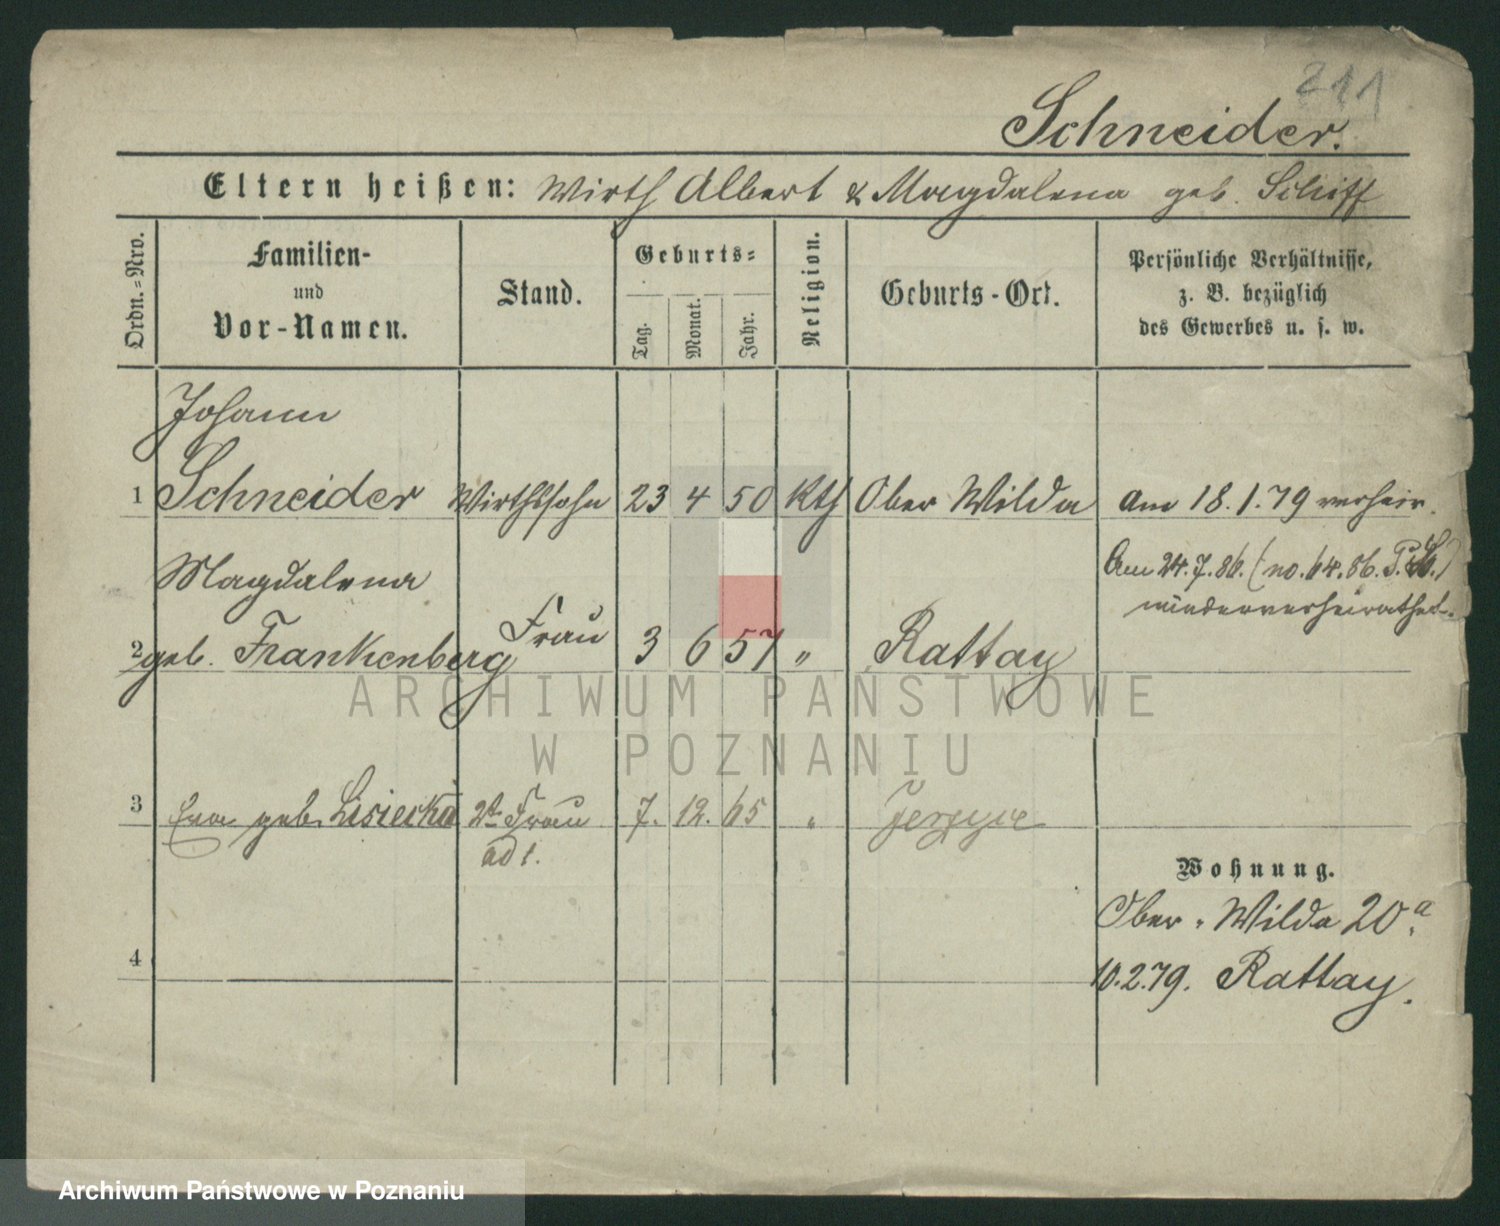 211
Schneider.
Eltern heißen: Wirth Albert & Magdalena geb. Schiff
Ordn.=Nro.
Familien-
und
Vor-Namen.
Stand.
Geburts=
Tag.
Monat.
Jahr.
Religion.
Geburts-Ort.
Persönliche Verhältnisse,
z. B. bezüglich
des Gewerbes u. s. w.
Johann
1 Schneider Wirthssohn 23 4 50 Kth Ober Wilda am 18.1.79 verheir.
Magdalena Am 24.7.86. (no. 64.86. P.)
Frau wiederverheirathet.
2 geb. Frankenberg 3 6 57 " Rattay
ARCHIWUM PAŃSTWOWE
W POZNANIU
3 Eva geb. Lisiecka 2te Frau 7. 12. 65 "
ad 1.
Wohnung.
Ober-Wilda 20a.
4
10.2.79. Rattay.
Archiwum Państwowe w Poznaniu